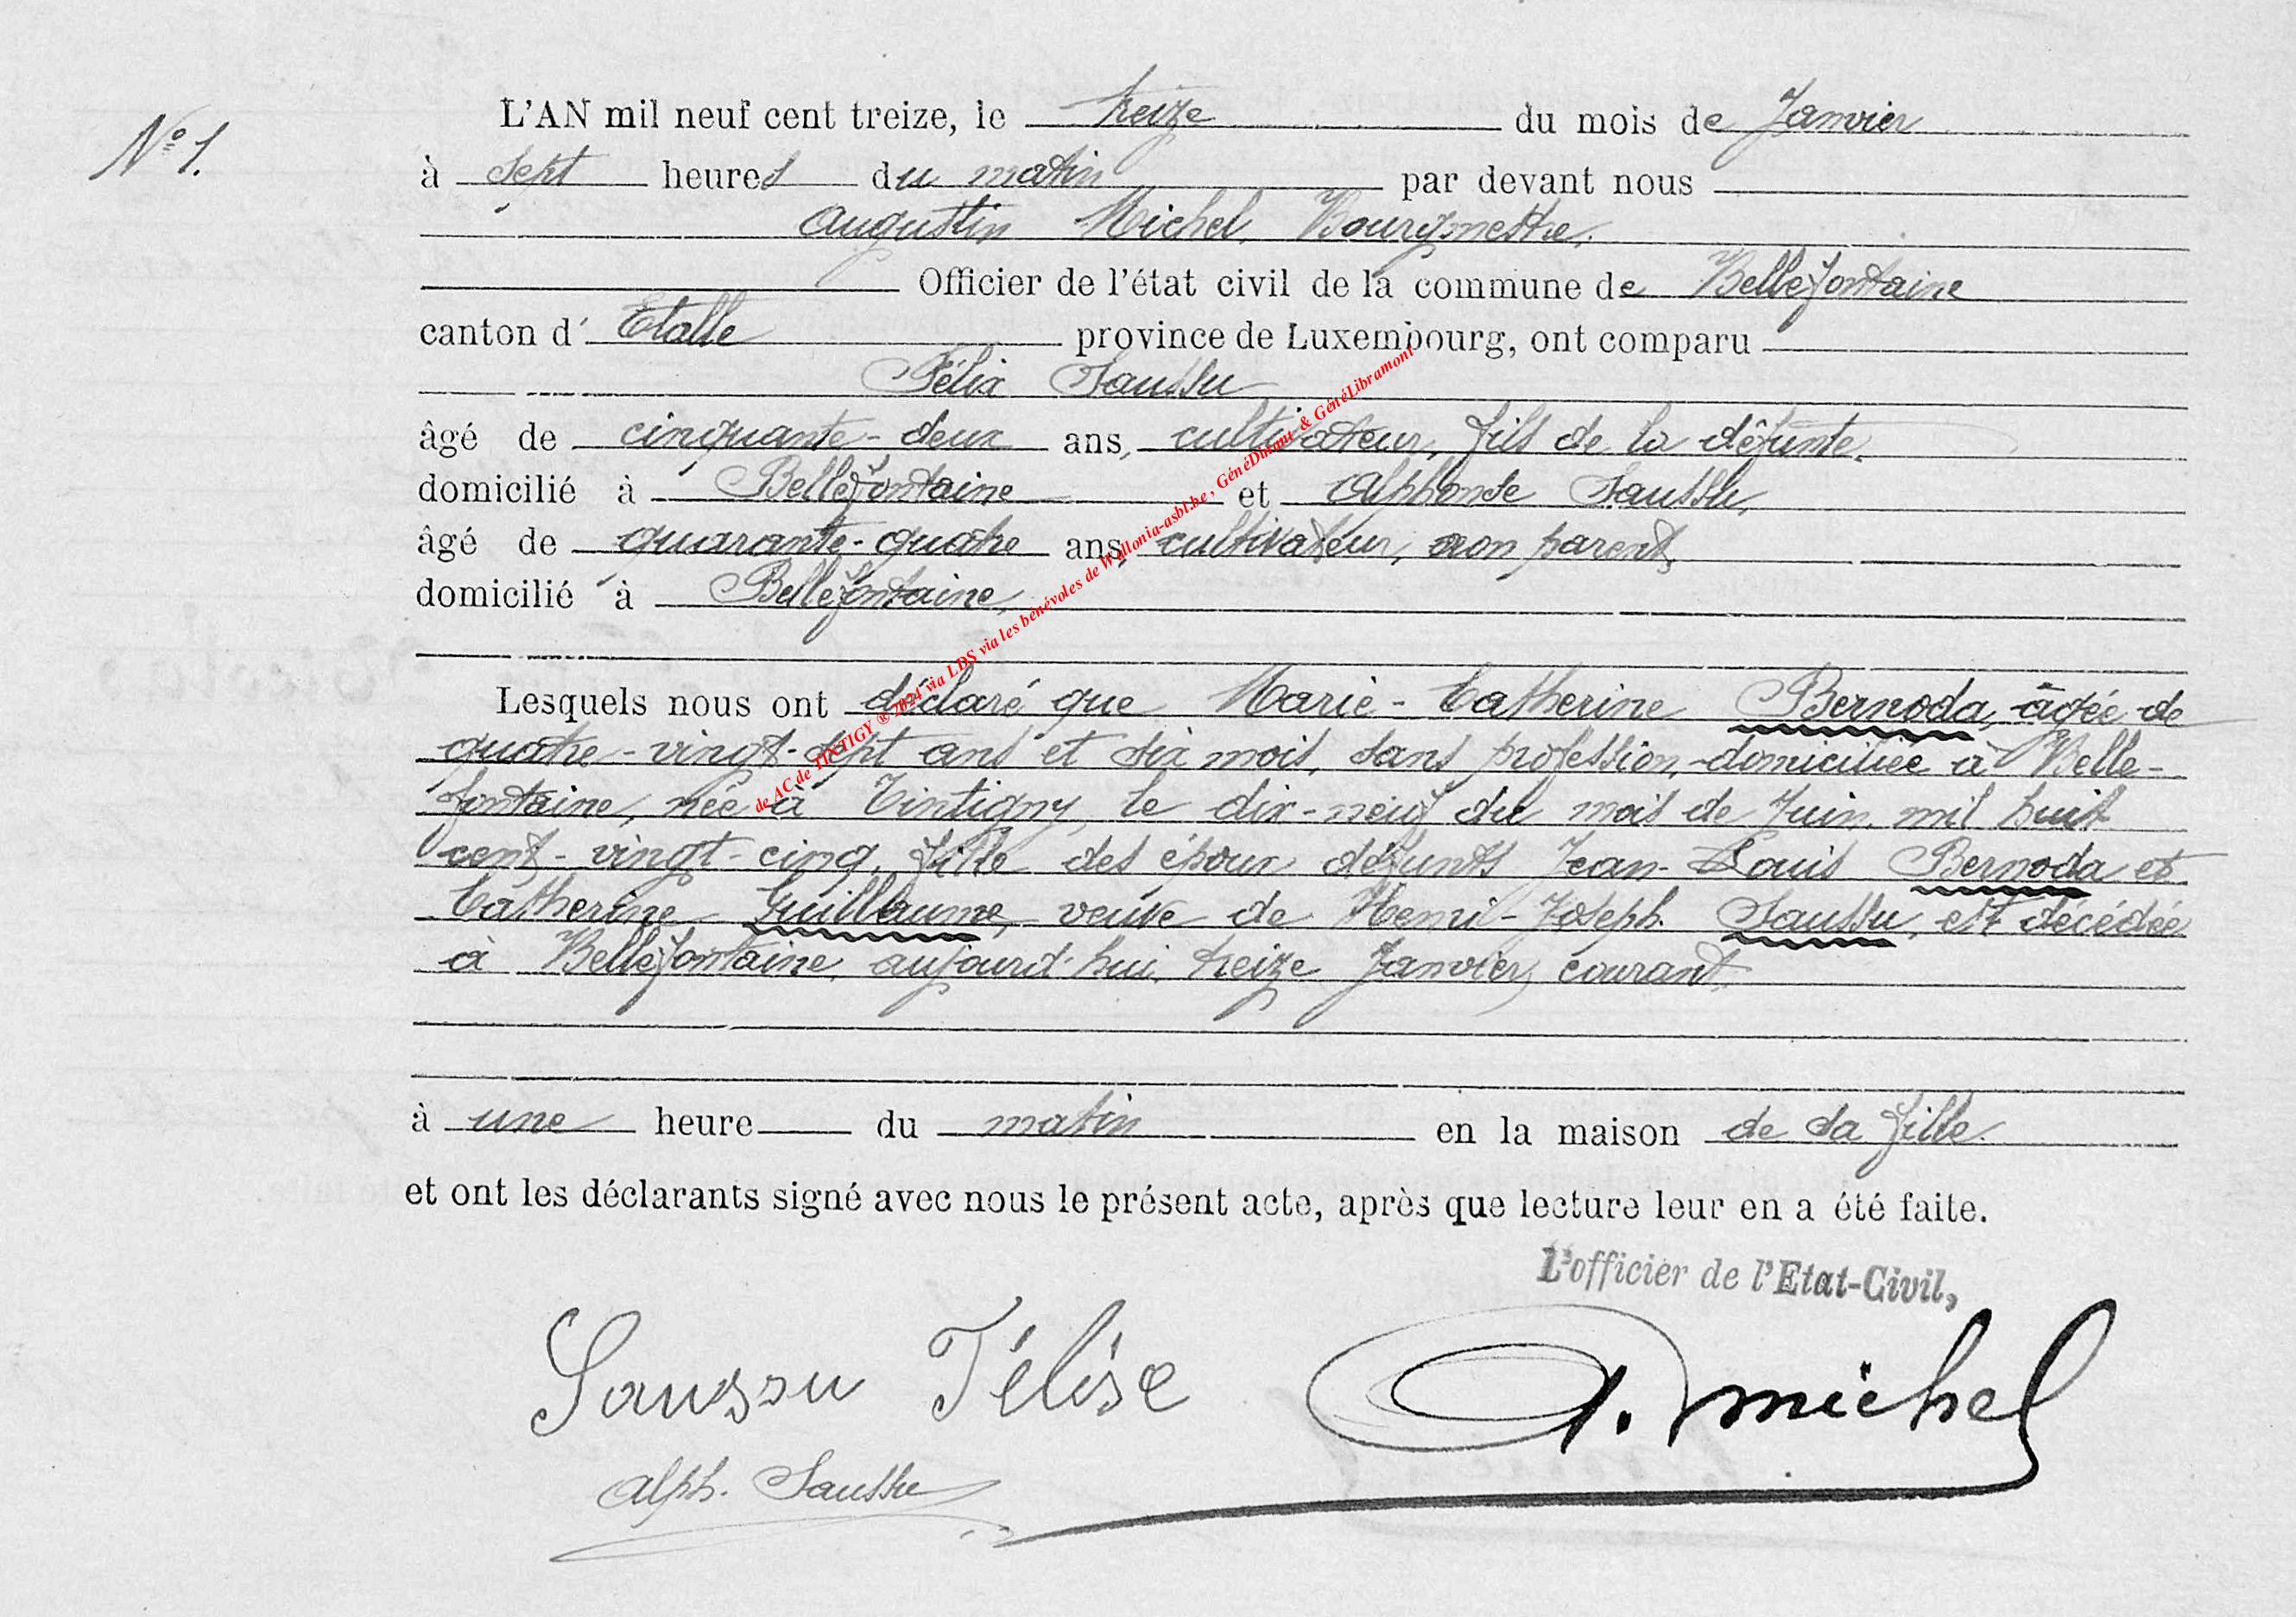 N° 1.
L'AN mil neuf cent treize, le treize du mois de Janvier
à sept heures du matin par devant nous
Augustin Michel, Bourgmestre,
Officier de l'état civil de la commune de Bellefontaine
canton d' Etalle province de Luxembourg, ont comparu
Félix Saussu
âgé de cinquante-deux ans, cultivateur, fils de la défunte,
domicilié à Bellefontaine et Alphonse Saussu,
âgé de quarante-quatre ans, cultivateur, non parent,
domicilié à Bellefontaine,
Lesquels nous ont déclaré que Marie-Catherine Bernoda, âgée de
quatre-vingt-sept ans et six mois, sans profession, domiciliée à Belle-
fontaine, née à Tintigny, le dix-neuf du mois de Juin mil huit
cent-vingt-cinq, fille des époux défunts Jean-Louis Bernoda et
Catherine Guillaume, veuve de Henri-Joseph Saussu, est décédée
à Bellefontaine, aujourd'hui, treize Janvier courant,
à une heure du matin en la maison de sa fille.
et ont les déclarants signé avec nous le présent acte, après que lecture leur en a été faite.
L'officier de l'Etat-Civil,
Saussu Félise
A. Michel
Alph. Saussu
de AC de TINTIGY ® 2024 via LDS via les bénévoles de Wallonia-asbl.be, GénéDinant & GénéLibramont